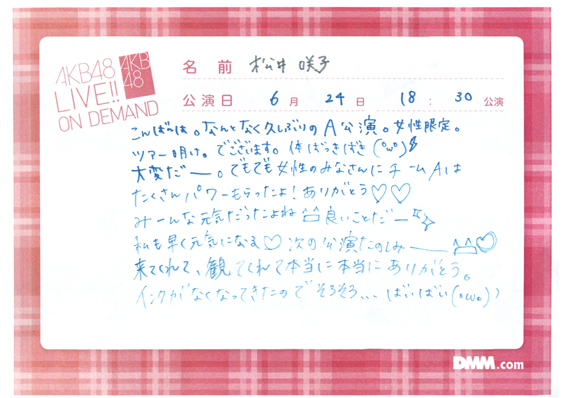 AKB48
LIVE!!
ON DEMAND
AKB
48
名前 松井 咲子
公演日 6月 24日 18:30 公演
こんばんは。なんとなく久しぶりのA公演。女性限定。
ツアー明け。でございます。体ばっきばき(°ω°)
大変だー。でもでも女性のみなさんにチームAは
たくさんパワーもらったよ!ありがとう♡♡
みーんな元気だったよね 良いことだー
私も早く元気になる♡次の公演たのしみ——♡
来てくれて、観てくれて本当に本当にありがとう。
インクがなくなってきたのでそろそろ...ばいばい(°ω°)
DMM.com